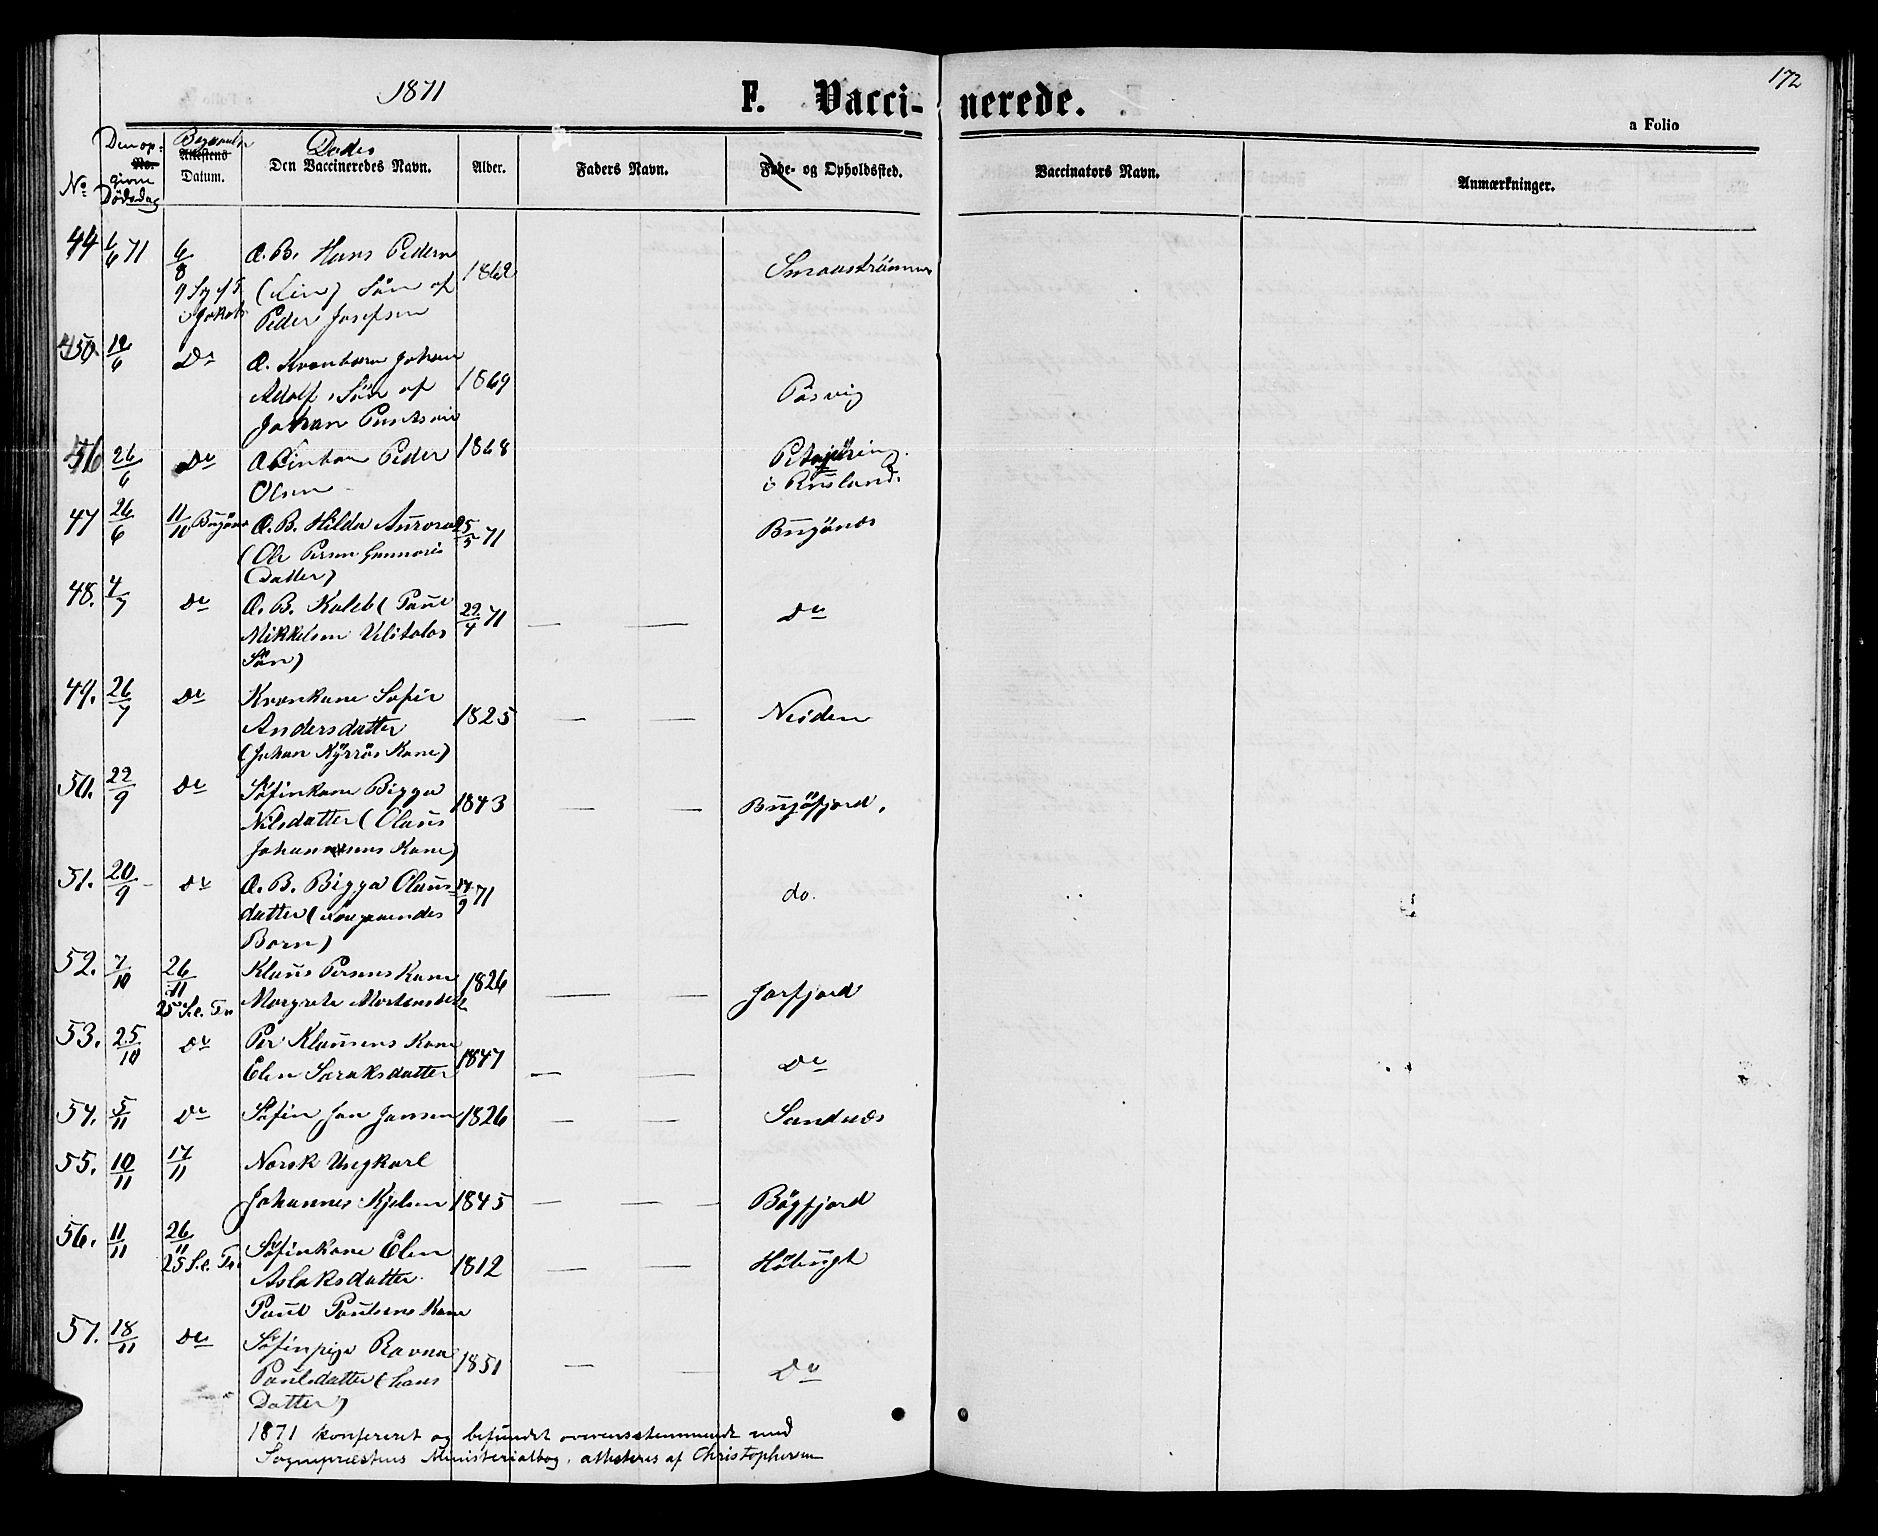 1871
F. Vacci- nerede.
172
a Folio
Den op-
No.
givne
Dødsdag
No
Attestens
Datum.
Dødes
Den Vaccineredes Navn.
Alder.
Faders Navn.
Føde- og Opholdssted.
Vaccinators Navn.
Anmærkninger.
44 6/6 71 6/8 Æ. B. Hans Pedersen 1862 Smaastrømmen
(Fin) Søn af
Peder Josefsen
450 12/6 Do Æ. Kvænbarn Johan 1869 Pasvig
Adolf, Søn af
Johan
56 26/6 Do Peder 1868
Olsen i Rusland.
47 26/6 11/10 Bugønæs Æ. B. Hilda Aurora 25/5 71 Bugønæs
(Ole Persen
Datter)
48. 4/7 Do Æ. B. Kaleb (Paul 22/4 71 Do
Mikkelsen
Søn)
49. 26/7 Do Kvænkone Sofie 1825 Neiden
Andersdatter
(Johan Kyrrös Kone)
50. 22/9 Do Søfinkone Bigga 1843 Bugøfjord.
Nilsdatter (Olaus
Johannesens Kone)
51. 20/9 Do Æ. B. Bigga Olaus- 14/9 71 do.
datter (Foregaaendes
Barn)
52. 7/10 26/11 Klaus Persens Kone 1826 Jarfjord
25 S. e. Tr. Margrete Mortensdtr
53. 25/10 Do Per Klausens Kone 1847 Do
Elen Saraksdatter
54. 5/11 Do Søfin Jon Jonsen 1826 Sandnæs
55. 10/11 17/11 Norsk Ungkarl
Johannes Kjelsen 1845 Bøgfjord
56. 11/11 26/11 Søfinkone Elen 1812 Høbugt
25 S. e. Tr. Aslaksdatter.
Paul Paulsens Kone
57. 18/11 Do Søfinpige Ravna 1851 Do
Paulsdatter (hans
Datter)
1871 konfereret og befundet overensstemmende med
Sognepræstens Ministerialbog, attesteres af Christophersen